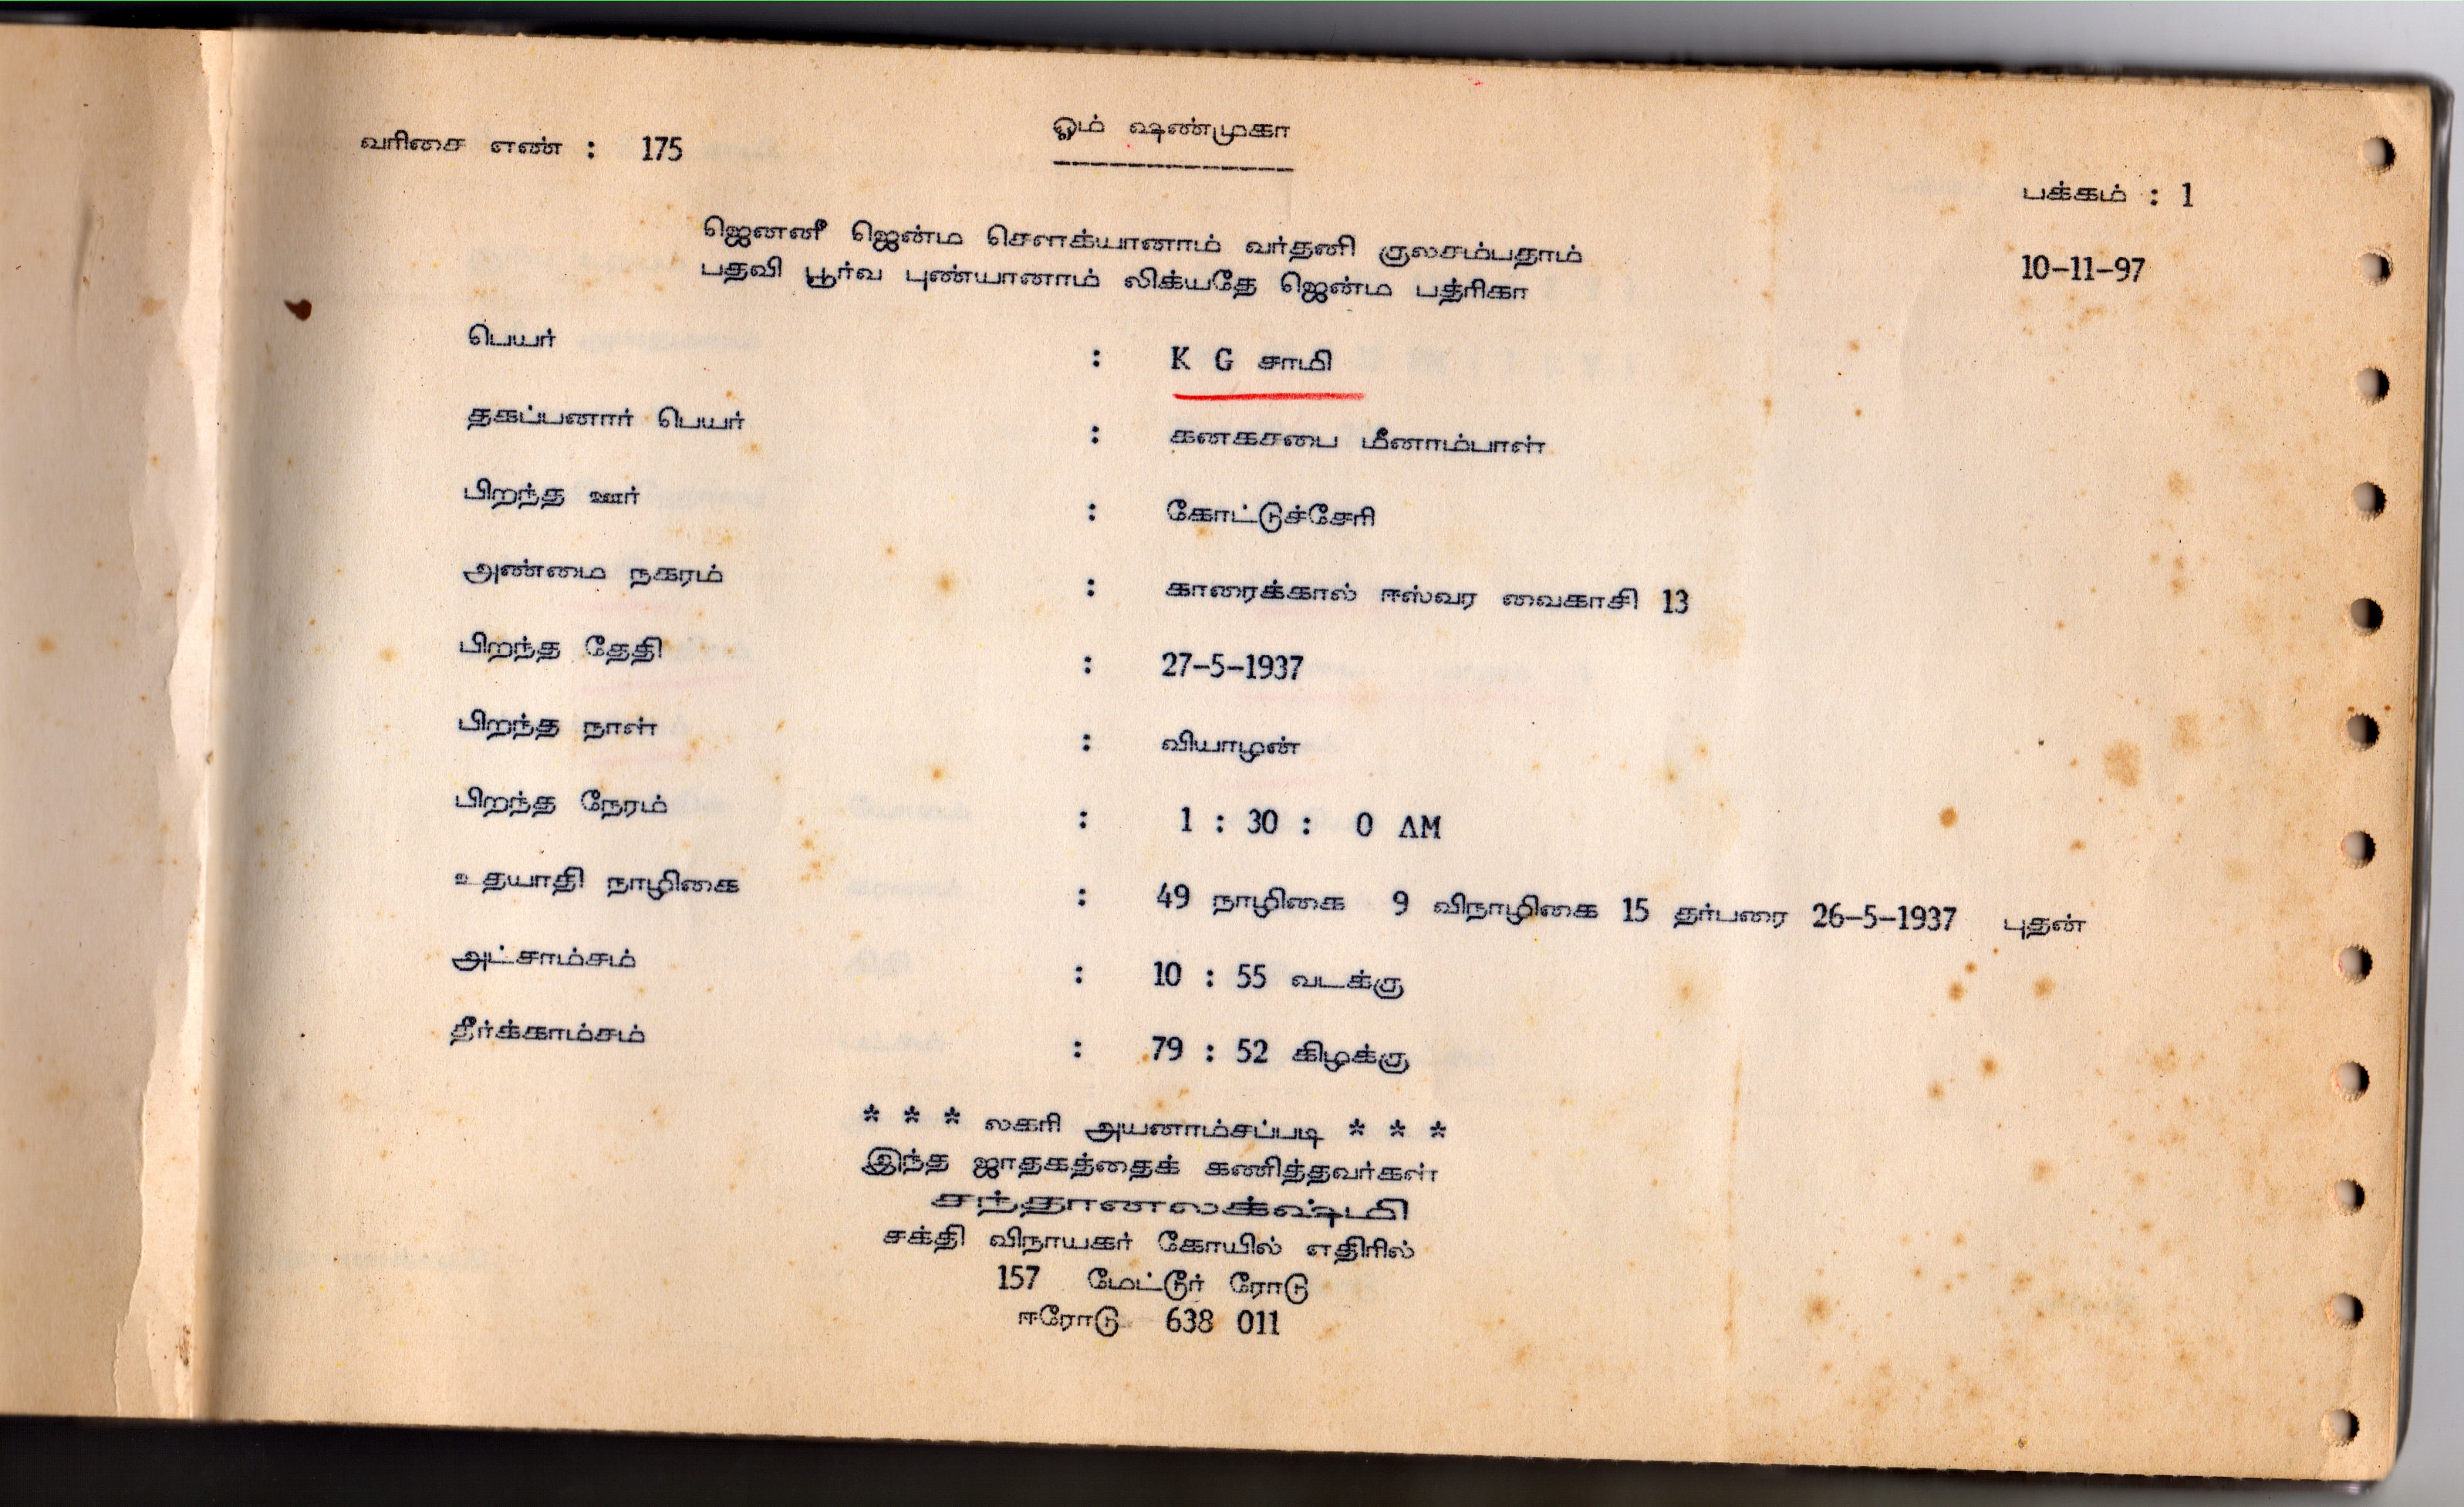 ஓம் ஷண்முகா
வரிசை எண் : 175
பக்கம் : 1
ஜெனனீ ஜென்ம சௌக்யானாம் வர்தனி குலசம்பதாம்
10-11-97
பதவி பூர்வ புண்யானாம் லிக்யதே ஜென்ம பத்ரிகா
பெயர் : K G சாமி
தகப்பனார் பெயர் : கனகசபை மீனாம்பாள்
பிறந்த ஊர் : கோட்டுச்சேரி
அண்மை நகரம் : காரைக்கால் ஈஸ்வர வைகாசி 13
பிறந்த தேதி : 27-5-1937
பிறந்த நாள் : வியாழன்
பிறந்த நேரம் : 1 : 30 : 0 AM
உதயாதி நாழிகை : 49 நாழிகை 9 விநாழிகை 15 தர்பரை 26-5-1937 புதன்
அட்சாம்சம் : 10 : 55 வடக்கு
தீர்க்காம்சம் : 79 : 52 கிழக்கு
* * * லகரி அயனாம்சப்படி * * *
இந்த ஜாதகத்தைக் கணித்தவர்கள்
சந்தானலக்ஷ்மி
சக்தி விநாயகர் கோயில் எதிரில்
157 மேட்டூர் ரோடு
ஈரோடு 638 011